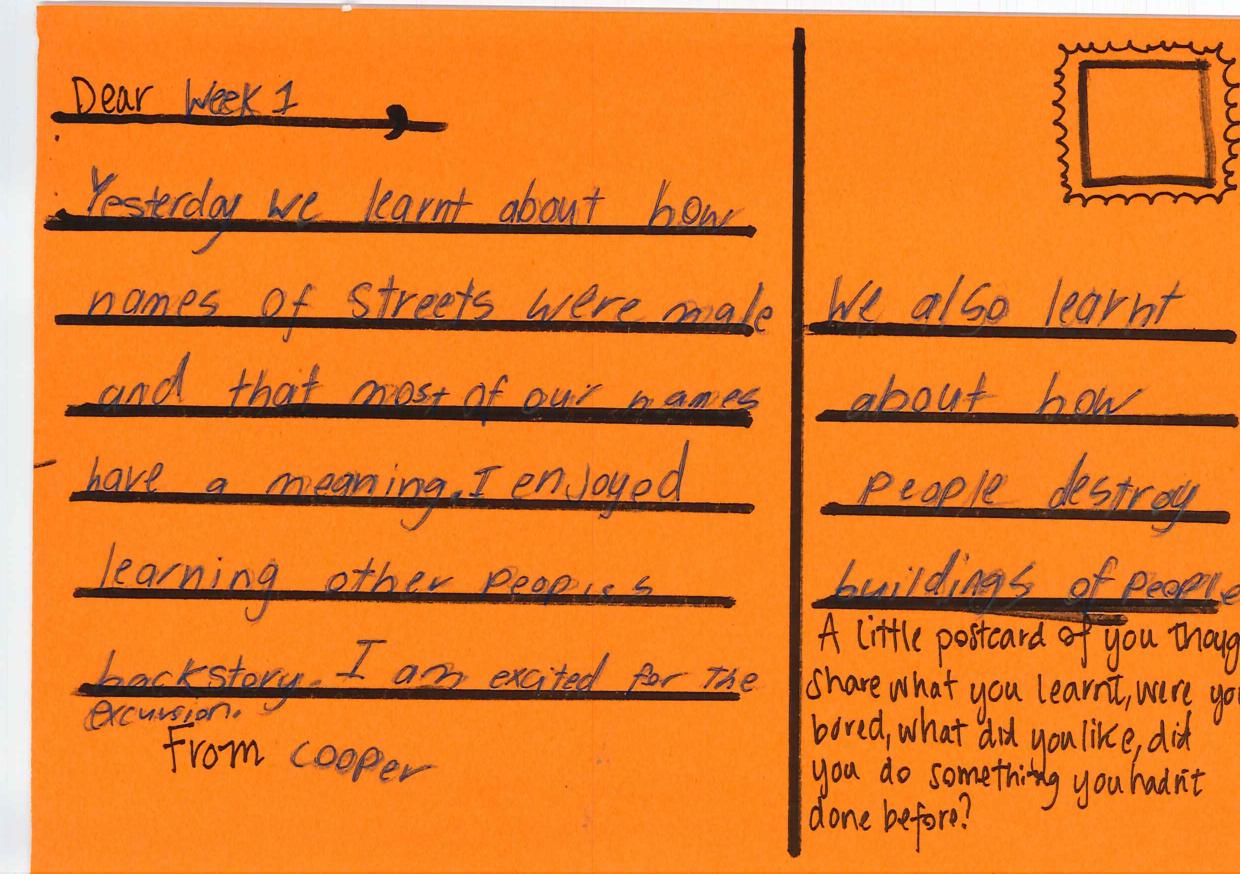 Dear Week 1,
Yesterday we learnt about how
names of streets were male
and that most of our names
have a meaning. I enjoyed
learning other peoples
backstory. I am excited for the
excursion.
From cooper
We also learnt
about how
people destroy
buildings of people
A little postcard of you thoug
share what you learnt, were you
bored, what did you like, did
you do something you hadn't
done before?